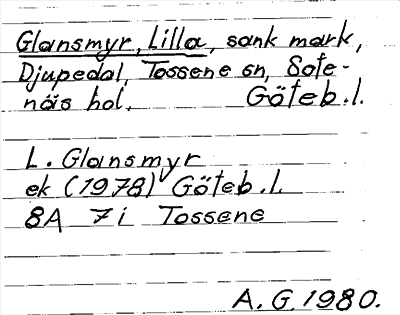 Glansmyr, Lilla, sank mark,
Djupedal, Tossene sn, Sote-
näs hd. Göteb.l.
L. Glansmyr
ek (1978) Göteb.l.
8A 7i Tossene
A.G. 1980.